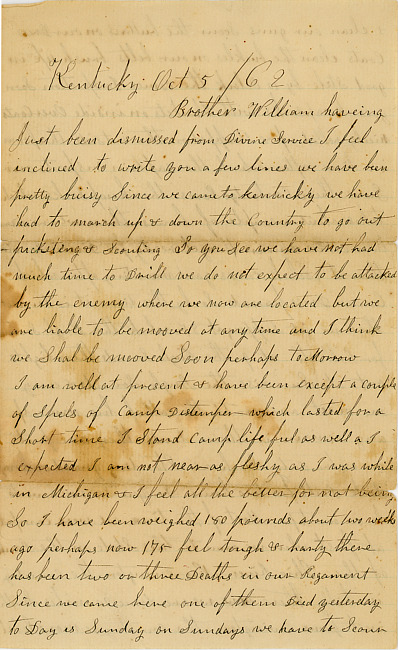 Kentucky Oct 5 /62
Brother William haveing
Just been dismissed from Divine Service I feel
inclined to write you a few lines we have ben
pretty buisy Since we came to kentucky we have
had to march up & down the Country to go out
picketing & Scouting So you See we have not had
much time to Drill we do not expect to be attacked
by the enemy where we now are located but we
are liable to be mooved at any time and I think
we Shal be mooved Soon perhaps to Morrow
I am well at present & have been except a couple
of Spels of Camp Distemper which lasted for a
Short time I Stand Camp life ful as well as I
expected I am not near as fleshy as I was while
in Michigan & I feel all the better for not being
So I have been weighed 180 pounds about two weeks
ago perhaps now 175 feel tough & harty there
has been two or three Deaths in our Regament
Since we came here one of them Died yesterday
to Day is Sunday on Sundays we have to Scour